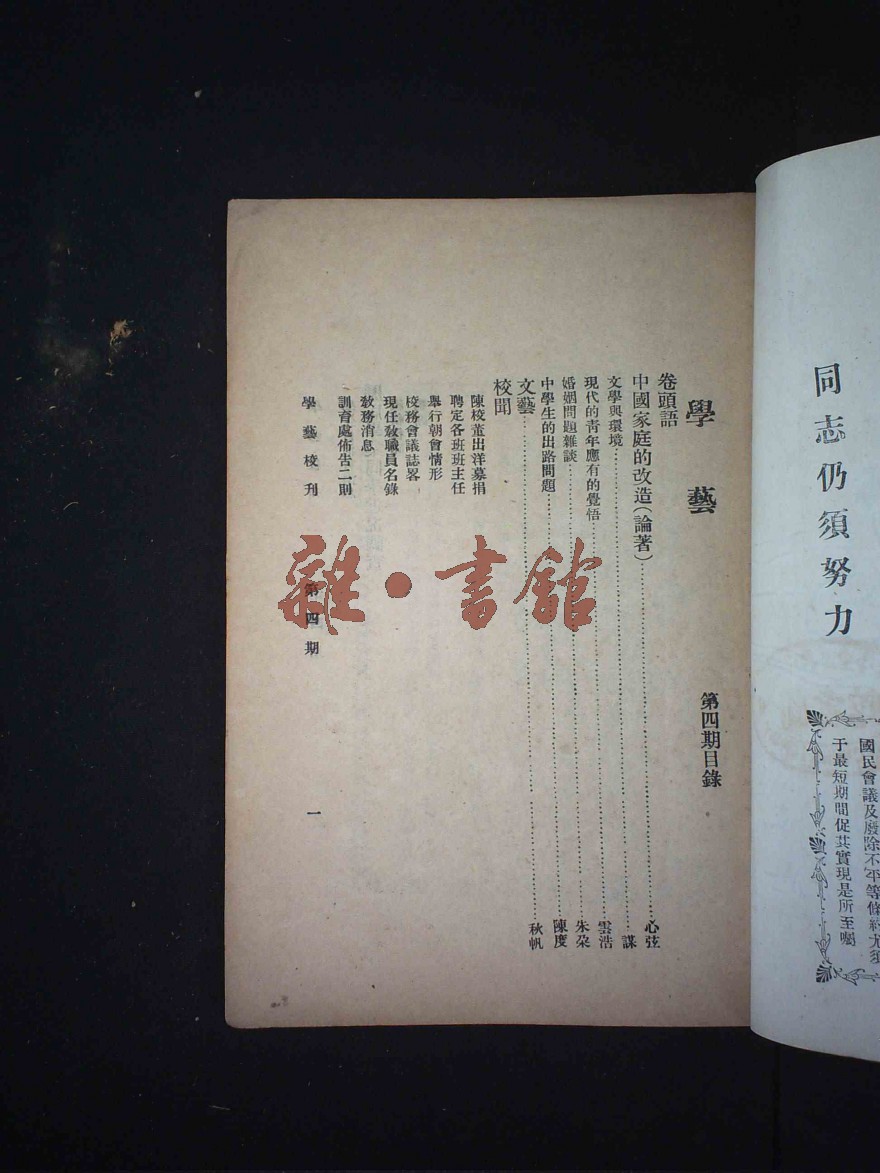 同志仍須努力
國民會議及廢除不平等條約尤須
于最短期間促其實現是所至囑
學藝 第四期目錄
卷頭語
中國家庭的改造(論著)……心弦
文學與環境……謀
現代的青年應有的覺悟……雲浩
婚姻問題雜談……朱朶
中學生的出路問題……陳度
文藝……秋帆
校聞
陳校董出洋募捐
聘定各班班主任
舉行朝會情形
校務會議誌畧
現任敎職員名錄
敎務消息
訓育處佈告二則
學藝校刊 第四期 一
雜·書館